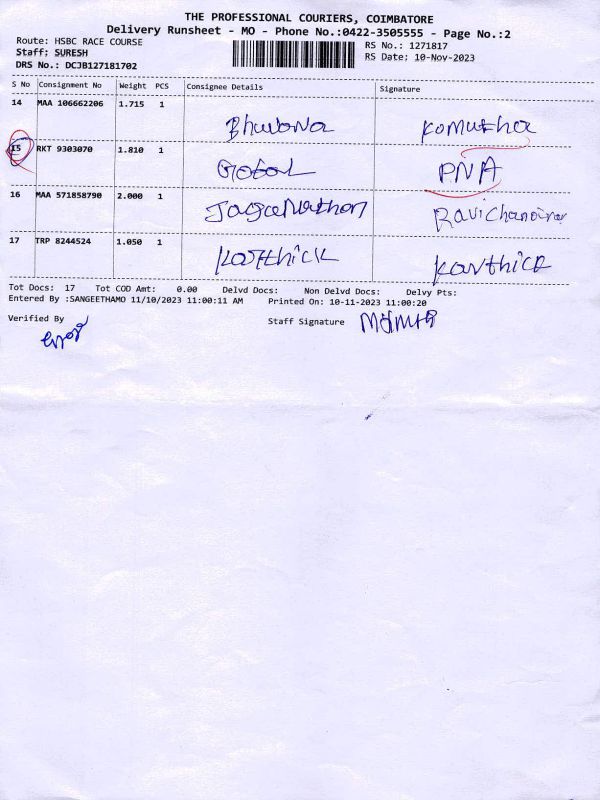 THE PROFESSIONAL COURIERS, COIMBATORE
Delivery Runsheet - MO - Phone No.:0422-3505555 - Page No.:2
Route: HSBC RACE COURSE RS No.: 1271817
Staff: SURESH RS Date: 10-Nov-2023
DRS No.: DCJB127181702
S No Consignment No Weight PCS Consignee Details Signature
14 MAA 106662206 1.715 1
Bhuvana Komutha
15 RKT 9303070 1.810 1
Gobal PNA
16 MAA 571858790 2.000 1
Jaganathan Ravichandran
17 TRP 8244524 1.050 1
Karthick Karthick
Tot Docs: 17 Tot COD Amt: 0.00 Delvd Docs: Non Delvd Docs: Delvy Pts:
Entered By :SANGEETHAMO 11/10/2023 11:00:11 AM Printed On: 10-11-2023 11:00:20
Verified By Staff Signature